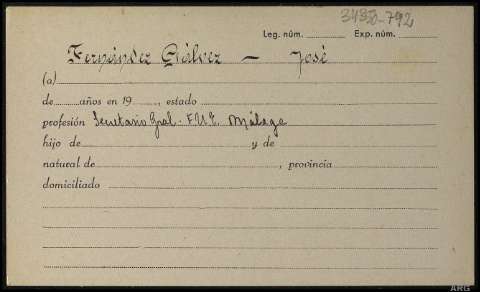 3430-792
Leg. núm. Exp. núm.
Fernández Gálvez — José
(a)
de años en 19 , estado
profesión Secretario Gral. F.U.E. Málaga
hijo de y de
natural de , provincia
domiciliado
ARG